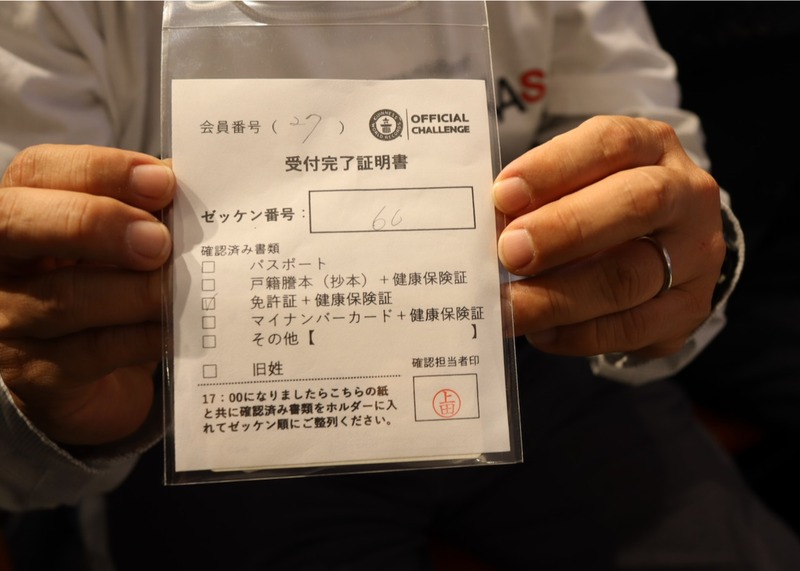 会員番号 ( 27 )
GUINNESS WORLD RECORDS
OFFICIAL
CHALLENGE
受付完了証明書
ゼッケン番号：
確認済み書類
□ パスポート
□ 戸籍謄本（抄本）＋健康保険証
☑ 免許証＋健康保険証
□ マイナンバーカード＋健康保険証
□ その他【 】
□ 旧姓
確認担当者印
上田
17：00になりましたらこちらの紙
と共に確認済み書類をホルダーに入
れてゼッケン順にご整列ください。
AS